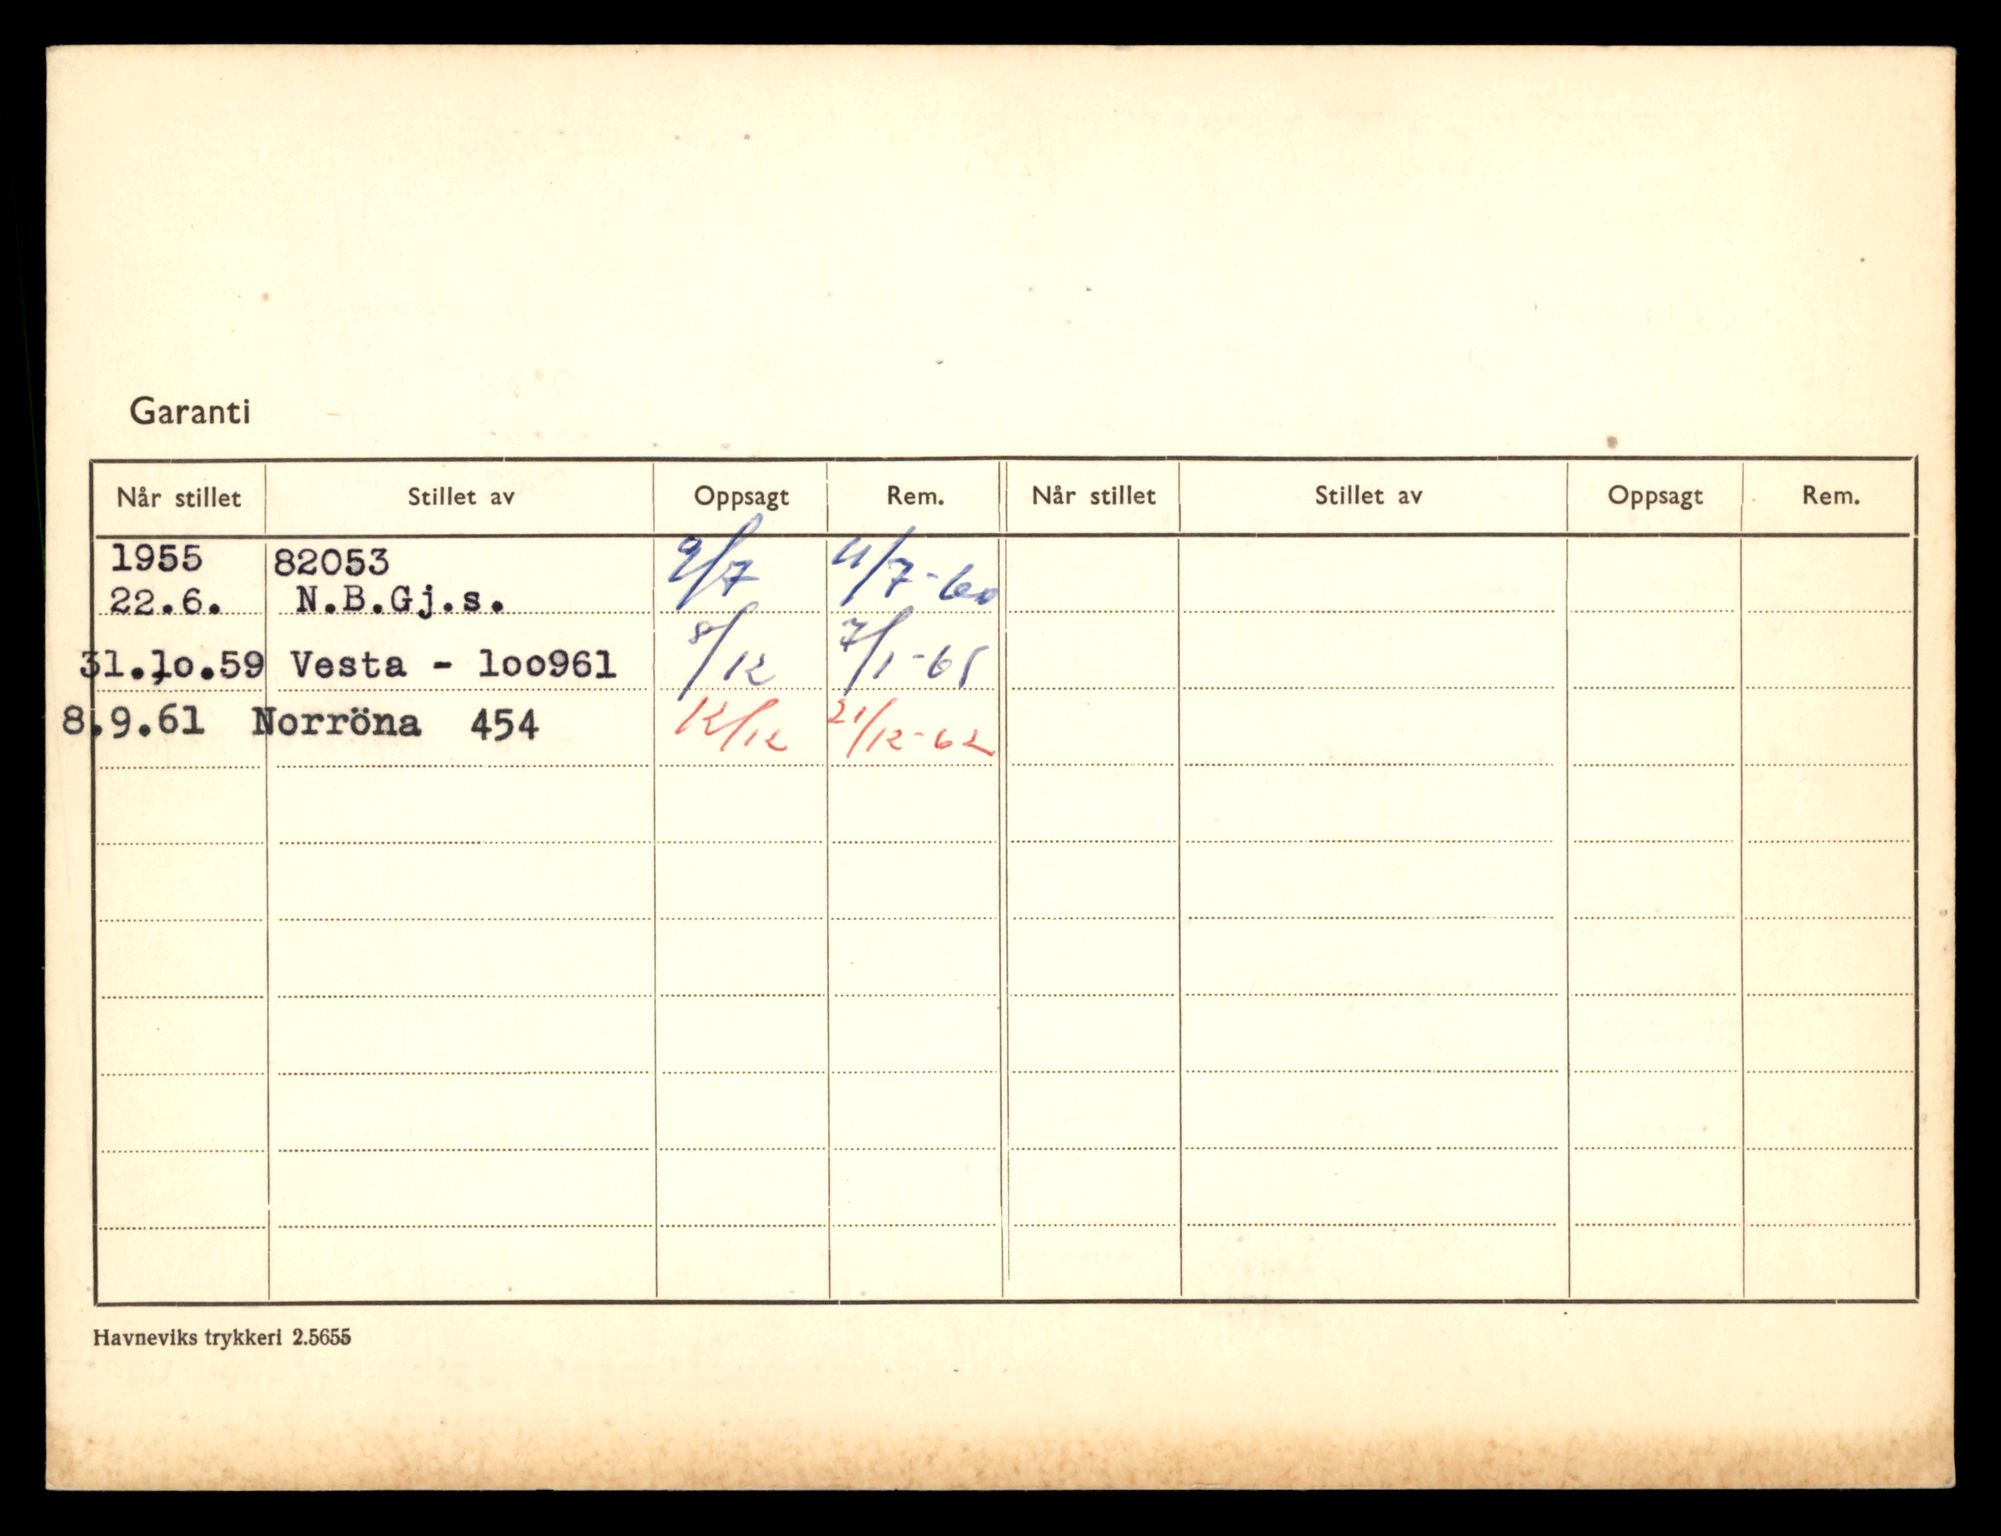 Garanti
Når stillet Stillet av Oppsagt Rem. Når stillet Stillet av Oppsagt Rem.
1955 82053 9/7 11/7-60
22.6. N.B.Gj.s.
31.10.59 Vesta - 100961 8/12 7/1-65
8.9.61 Norröna 454 12/12 21/12-62
Havneviks trykkeri 2.5655